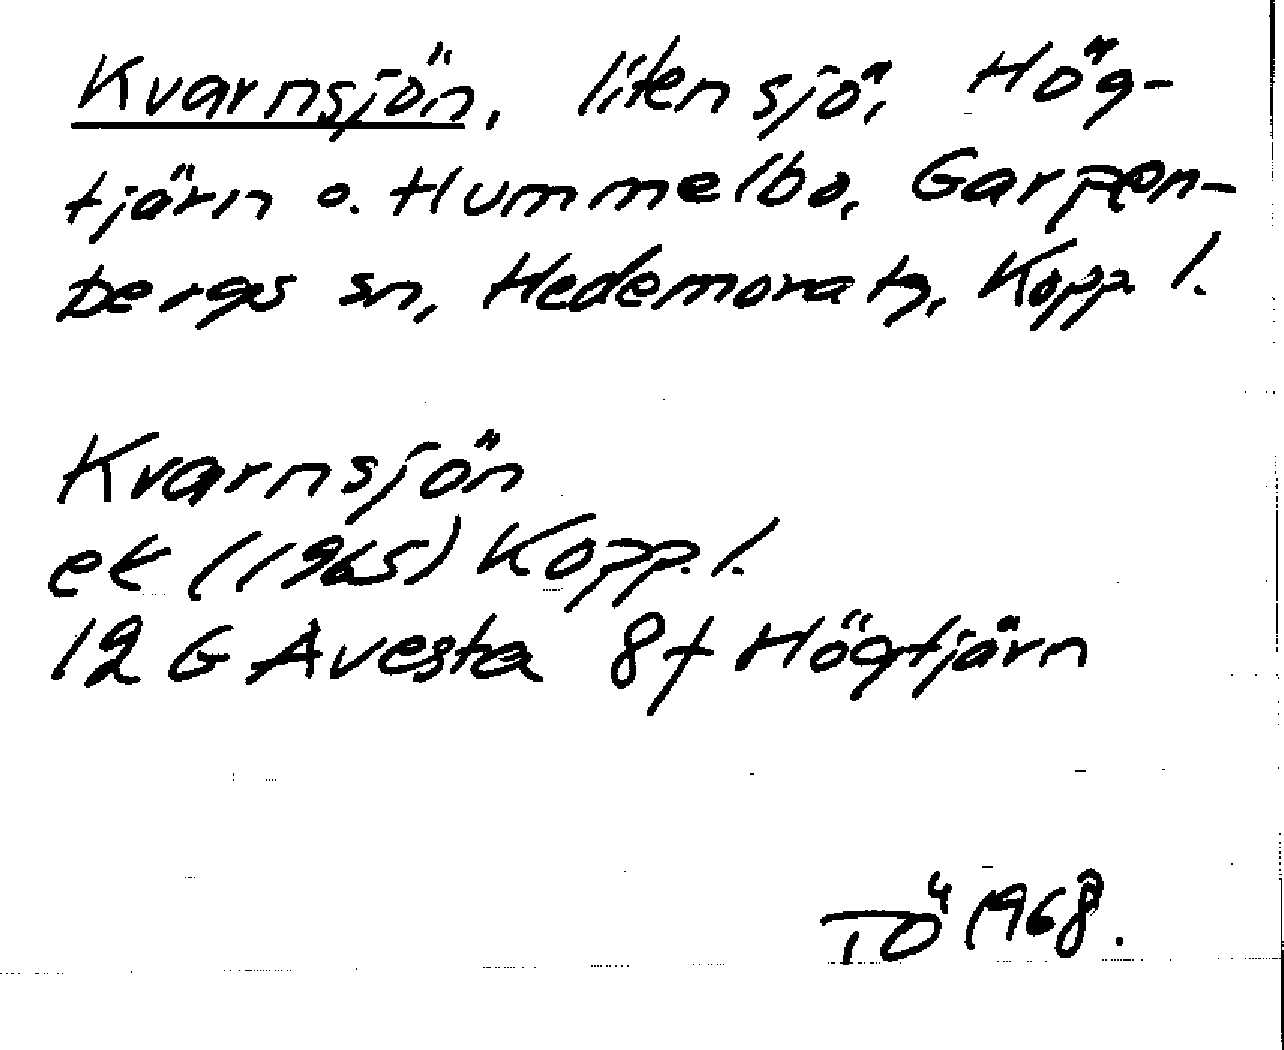 Kvarnsjön, liten sjö, Hög-
tjärn o. Hummelbo, Garpen-
bergs sn, Hedemora tg, Kopp. l.
Kvarnsjön
ek (1965) Kopp. l.
12 G Avesta 8f Högtjärn
TÖ 1968.